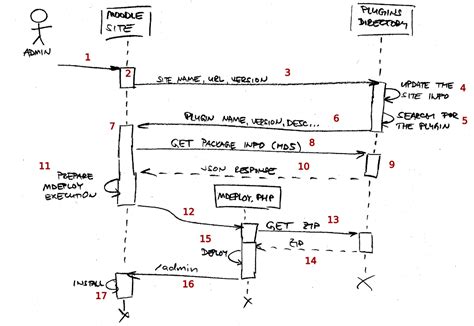 MOODLE
SITE
PLUGINS
DIRECTORY
ADMIN
1
2
SITE NAME, URL, VERSION
3
UPDATE THE
SITE INFO
4
SEARCH FOR
THE PLUGIN
5
PLUGIN NAME, VERSION, DESC...
6
7
GET PACKAGE INFO (MD5)
8
9
JSON RESPONSE
10
11
PREPARE
MDEPLOY
EXECUTION
MDEPLOY.PHP
12
GET ZIP
13
ZIP
14
15
DEPLOY
/admin
16
INSTALL
17